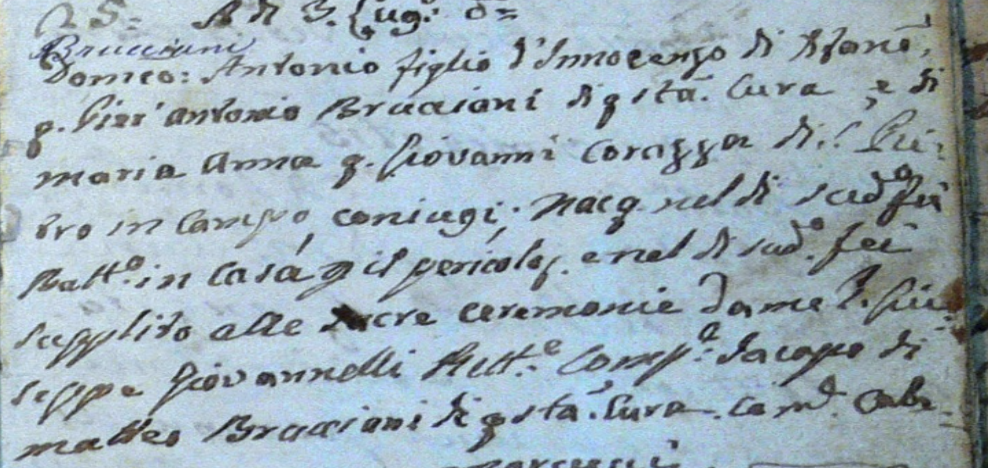 25. A di 3. Lug: d=
Brucciani
Domco: Antonio figlio d'Innocenzo di
q. Pier antonio Brucciani di qsta. Cura, e di
maria Anna q. Giovanni Corazza di S. Pie:
tro in Campo, coniugi; nacq. nel di sudo. fu
Batto. in casa p il pericolo, e nel di sudo. fu
supplito alle sacre ceremonie da me P. Giu:
seppe Giovannelli Rette. Compe. Jacopo di
matteo Brucciani di qsta. Cura. Com